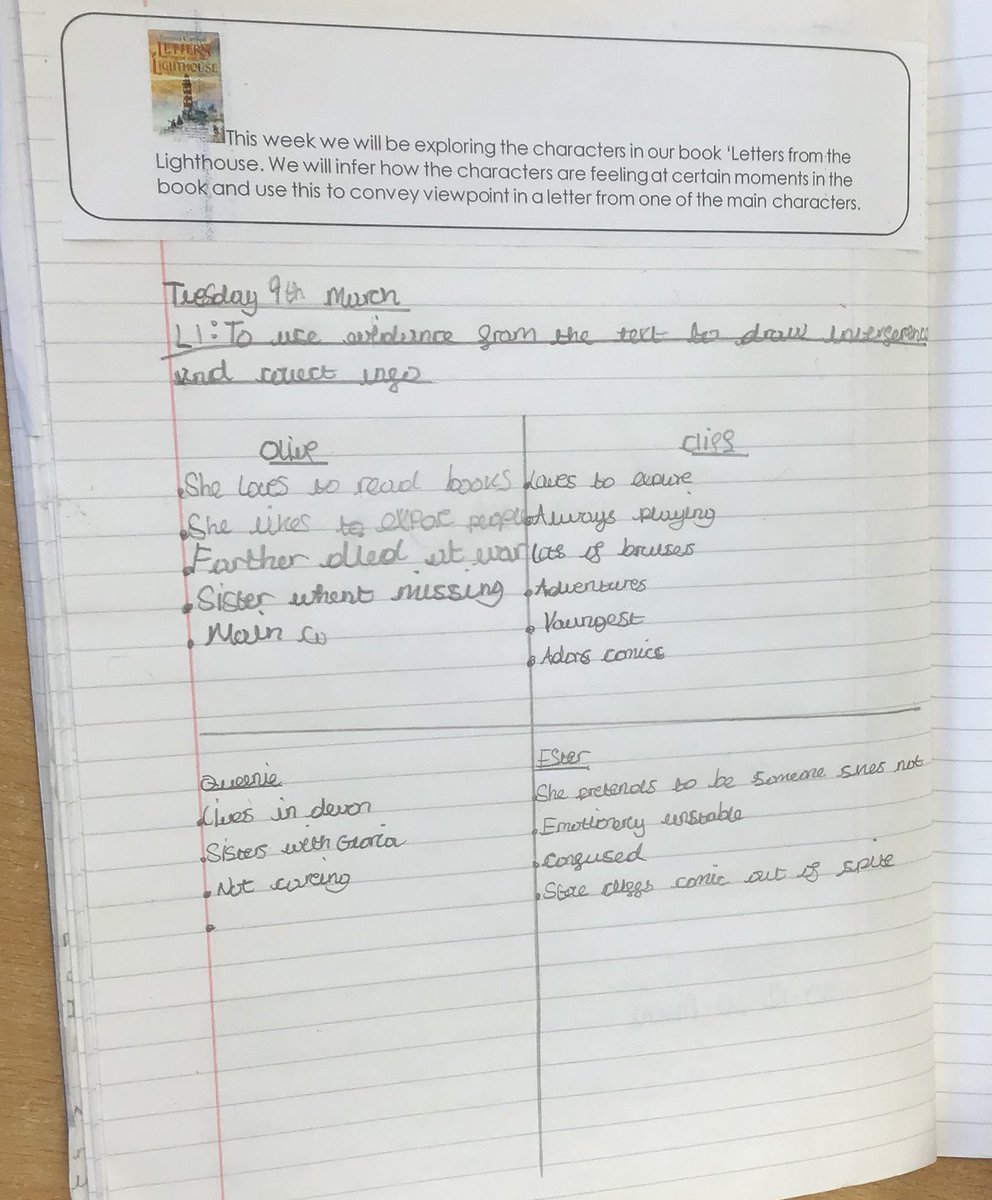 LETTERS
LIGHTHOUSE
This week we will be exploring the characters in our book 'Letters from the
Lighthouse. We will infer how the characters are feeling at certain moments in the
book and use this to convey viewpoint in a letter from one of the main characters.
Tuesday 9th March
LI: To use evidence from the text to draw
and
Olive
She loves to read books
She likes to people
Farther died at war
Sister whent missing
Main co
Cliff
Loves to
Always playing
Lots of bruises
Adventures
Youngest
Adors comics
Queenie
Lives in devon
Sisters with Gloria
Not caring
Ester
She pretends to be someone shes not
unstable
Confused
Stole cliffs comic out of spite